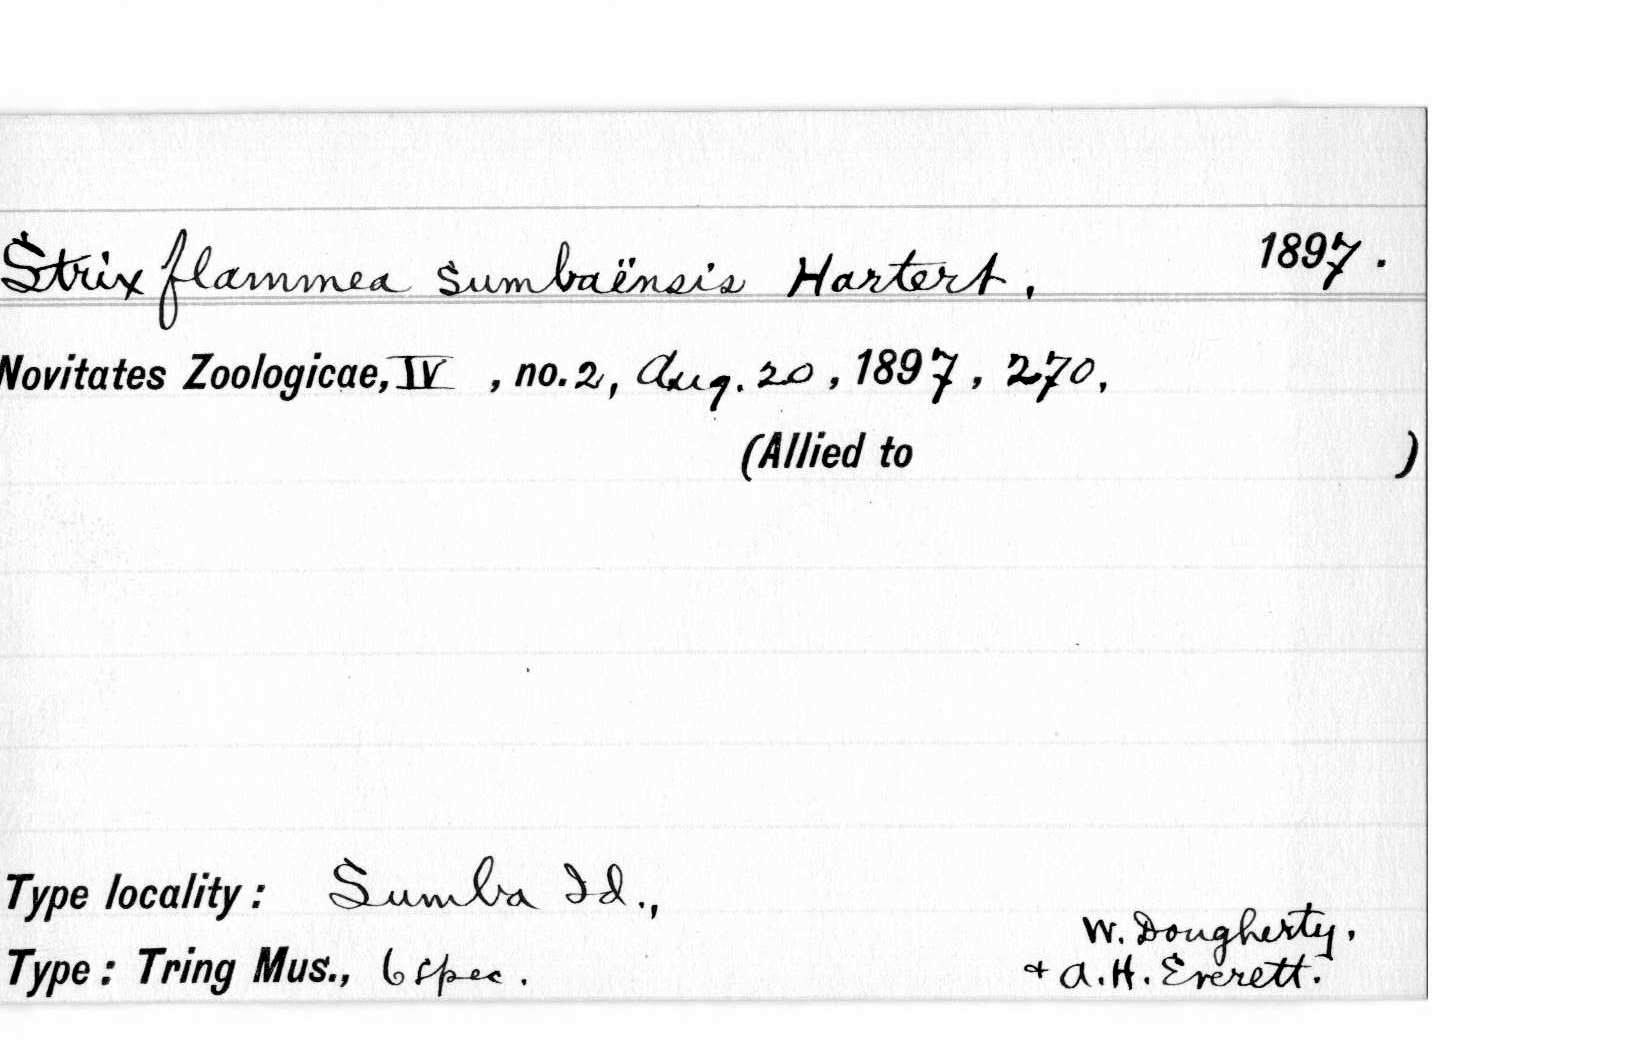 Strix flammea sumbaënsis Hartert. 1897.
Novitates Zoologicae, IV , no. 2, Aug. 20 , 1897 , 270.
(Allied to )
Type locality : Sumba Id.,
W. Dougherty.
Type : Tring Mus., 6 spec. + A. H. Everett.